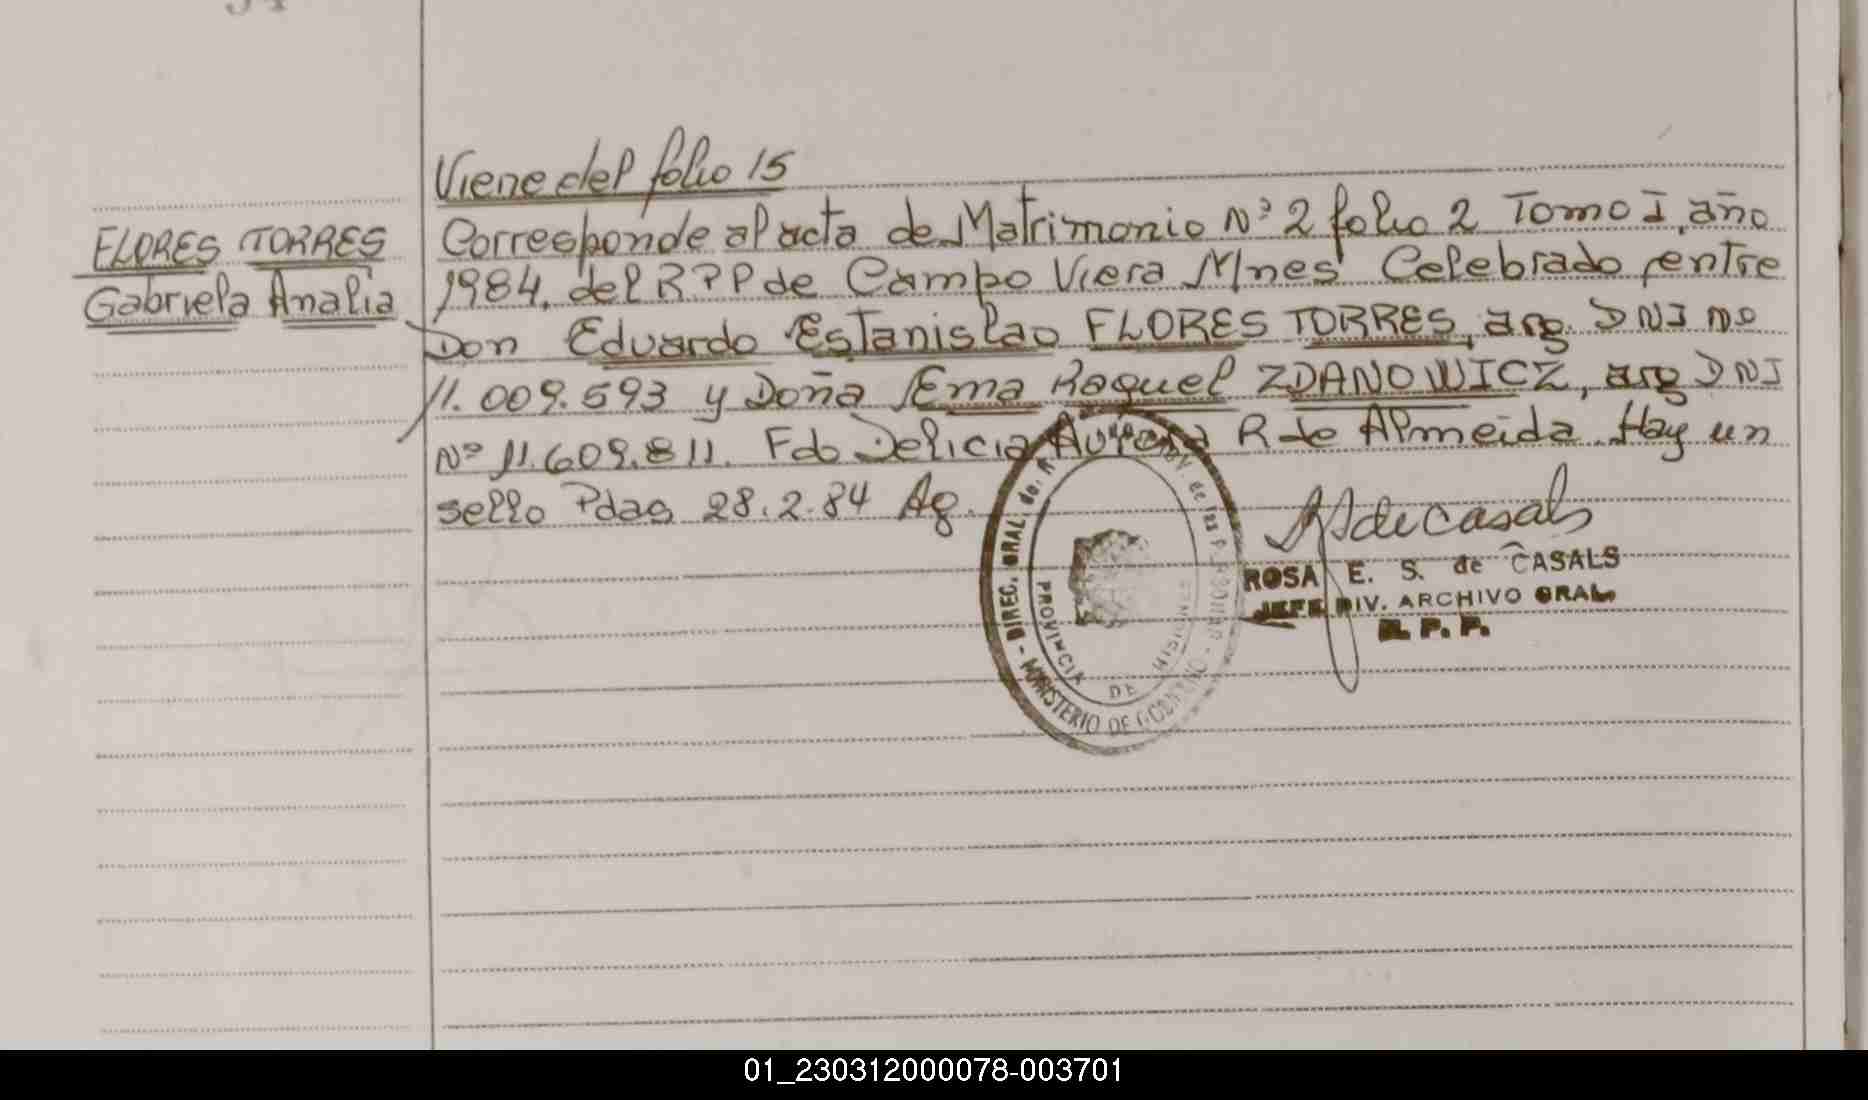 Viene del folio 15
FLORES TORRES
Gabriela Analia
Corresponde al acta de Matrimonio Nº 2 folio 2 Tomo I, año
1984, del RPP de Campo Viera Mnes Celebrado entre
Don Eduardo Estanislao FLORES TORRES, arg. DNI Nº
11.009.593 y Doña Ema Raquel ZDANOWICZ, arg DNI
Nº 11.609.811. Fdo Delicia Aurora R de Almeida. Hay un
sello Pdas 28.2.84 Ag.
DIREC. GRAL. de. R
PROV. de las P
MINISTERIO DE GOBIERNO
PROVINCIA DE MISIONES
R de Casals
ROSA E. S. de CASALS
JEFE DIV. ARCHIVO GRAL.
R. P. P.
01_230312000078-003701